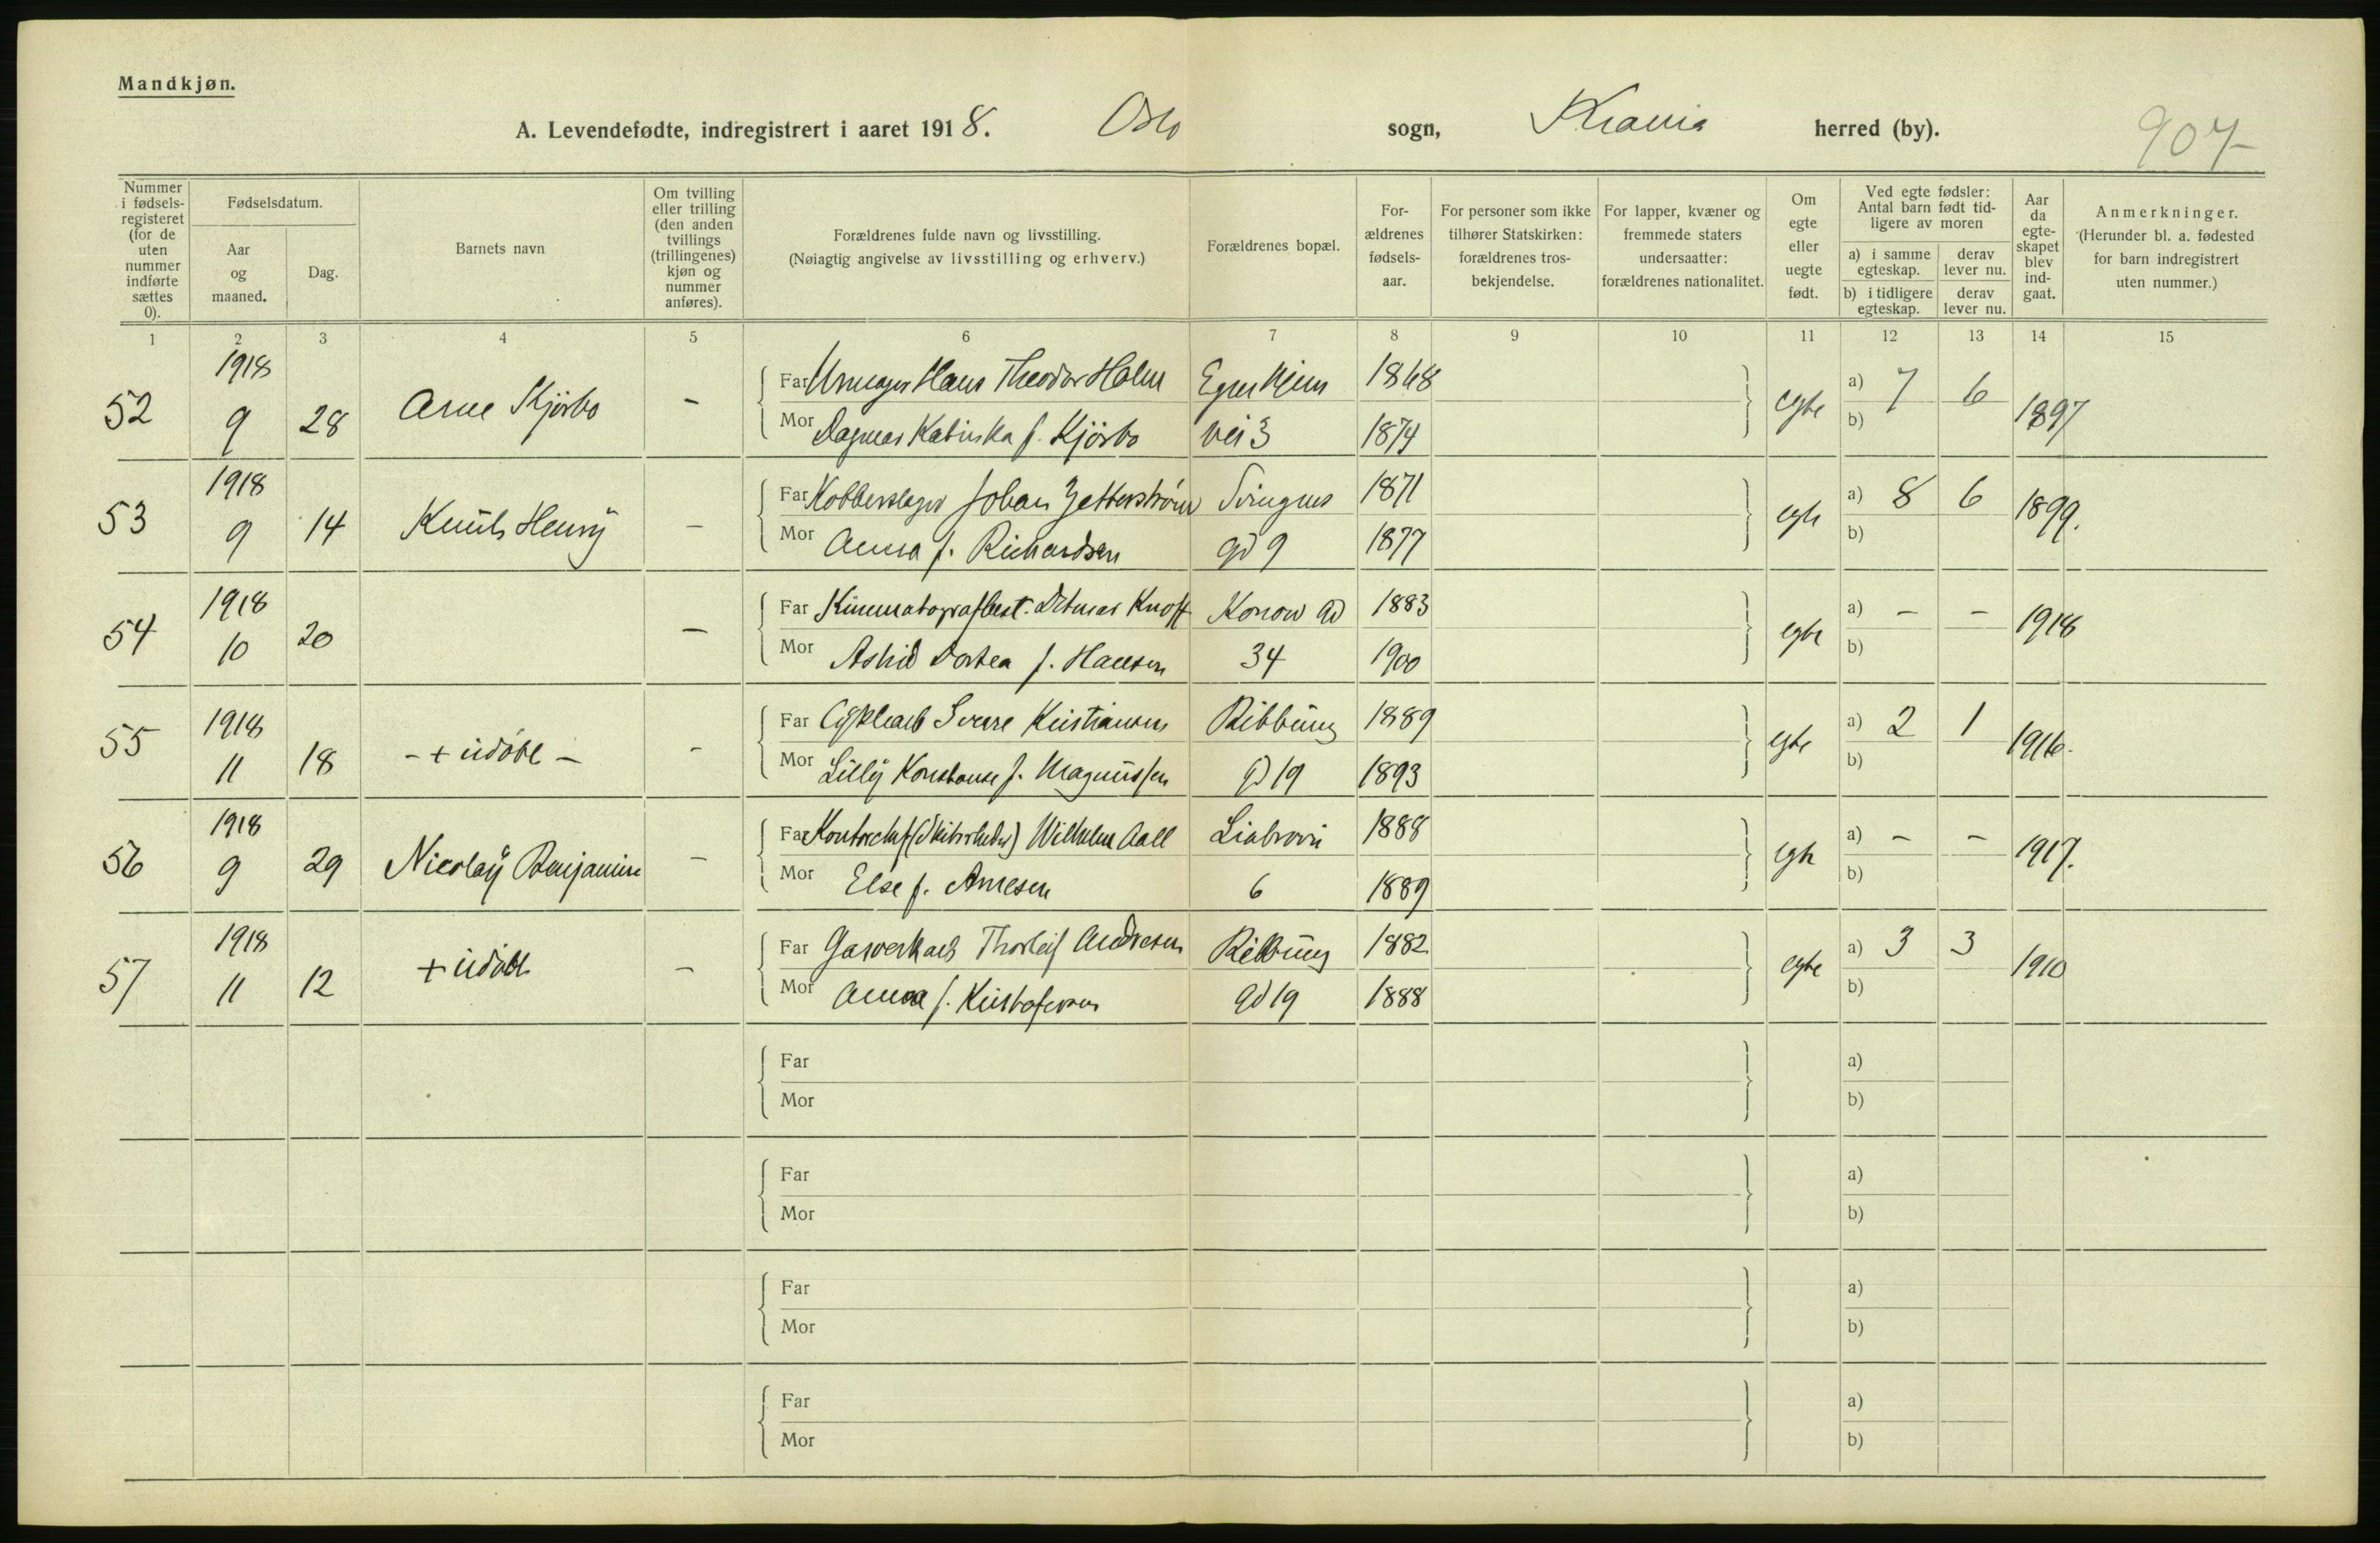 Mandkjøn.
A. Levendefødte, indregistrert i aaret 1918. Oslo sogn, Krania herred (by).
907
Nummer i fødsels-registeret (for de uten nummer indførte sættes 0).
Fødselsdatum.
Aar og maaned.
Dag.
Barnets navn
Om tvilling eller trilling (den anden tvillings (trillingenes) kjøn og nummer anføres).
Forældrenes fulde navn og livsstilling.
(Nøiagtig angivelse av livsstilling og erhverv.)
Forældrenes bopæl.
For-ældrenes fødsels-aar.
For personer som ikke tilhører Statskirken: forældrenes tros-bekjendelse.
For lapper, kvæner og fremmede staters undersaatter: forældrenes nationalitet.
Om egte eller uegte født.
Ved egte fødsler: Antal barn født tid-ligere av moren
a) i samme egteskap.
derav lever nu.
b) i tidligere egteskap.
derav lever nu.
Aar da egte-skapet blev ind-gaat.
Anmerkninger.
(Herunder bl. a. fødested for barn indregistrert uten nummer.)
1 2 3 4 5 6 7 8 9 10 11 12 13 14 15
52 1918 9 28 Arne Kjörbo -
Far Urmager Hans Theodor Holm Egnehjem 1868
Mor Dagmar Katinka f. Kjörbo vei 3 1874
egte a) 7 6 b) 1897
53 1918 9 14 Knut Henry -
Far Kobberslager Johan Zetterström Svingens 1871
Mor Anna f. Richardsen gd 9 1877
egte a) 8 6 b) 1899.
54 1918 10 20 -
Far Kinematografbest. Ditmar Knoff Konow gd 1883
Mor Astrid Dortea f. Hansen 34 1900
egte a) - - b) 1918
55 1918 11 18 - + udöbt - -
Far Cyklearb Sverre Kristiansen Ribbung 1889
Mor Lilly Konstanse f. Magnussen gd 19 1893
egte a) 2 1 b) 1916.
56 1918 9 29 Nicolay Benjamin -
Far Kontorchef Wilhelm Aall Liabrovei 1888
Mor Else f. Arnesen 6 1889
egte a) - - b) 1917.
57 1918 11 12 + udöbt -
Far Gasverkarb Thorleif Andresen Ribbung 1882
Mor Anna f. Kristofersen gd 19 1888
egte a) 3 3 b) 1910
Far a)
Mor b)
Far a)
Mor b)
Far a)
Mor b)
Far a)
Mor b)